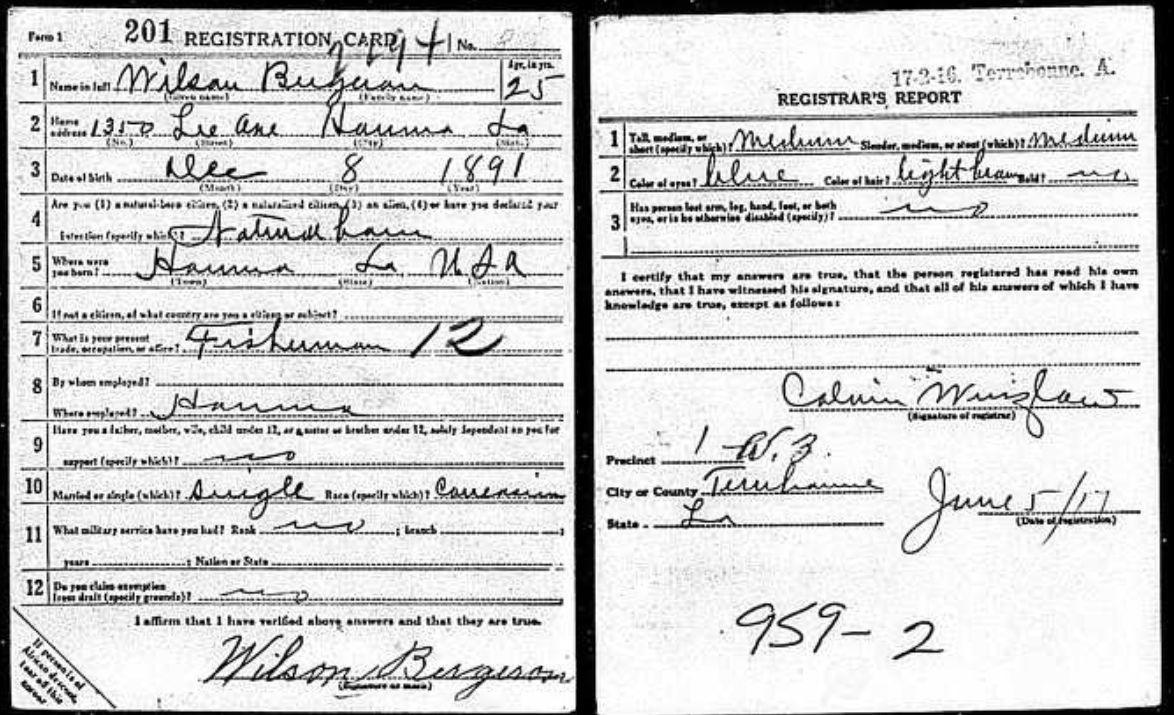 Form 1 201 REGISTRATION CARD No.
1 Name in full Wilson Bergeron Age, in yrs. 25
(Given name) (Family name)
2 Home address 1350 Lee Ave Houma La
(No.) (Street) (City) (State)
3 Date of birth Dec 8 1891
(Month) (Day) (Year)
4 Are you (1) a natural-born citizen, (2) a naturalized citizen, (3) an alien, (4) or have you declared your
intention (specify which)? Natural born
5 Where were you born? Houma La U S A
(Town) (State) (Nation)
6 If not a citizen, of what country are you a citizen or subject?
7 What is your present trade, occupation, or office? Fisherman 12
8 By whom employed?
Where employed? Houma
9 Have you a father, mother, wife, child under 12, or a sister or brother under 12, solely dependent on you for
support (specify which)? no
10 Married or single (which)? Single Race (specify which)?
11 What military service have you had? Rank no ; branch ;
years ; Nation or State
12 Do you claim exemption from draft (specify grounds)? no
I affirm that I have verified above answers and that they are true.
Wilson Bergeron
(Signature or mark)
If person is of
African descent,
tear off this
corner.
17-2-16. Terrebonne. A.
REGISTRAR'S REPORT
1 Tall, medium, or short (specify which)? Medium Slender, medium, or stout (which)? Medium
2 Color of eyes? blue Color of hair? light brown Bald? no
3 Has person lost arm, leg, hand, foot, or both
eyes, or is he otherwise disabled (specify)? no
I certify that my answers are true, that the person registered has read his own
answers, that I have witnessed his signature, and that all of his answers of which I have
knowledge are true, except as follows:
Calvin Wurzlow
(Signature of registrar)
Precinct 1 W. 3
City or County Terrebonne
State La June 5/17
(Date of registration)
959-2